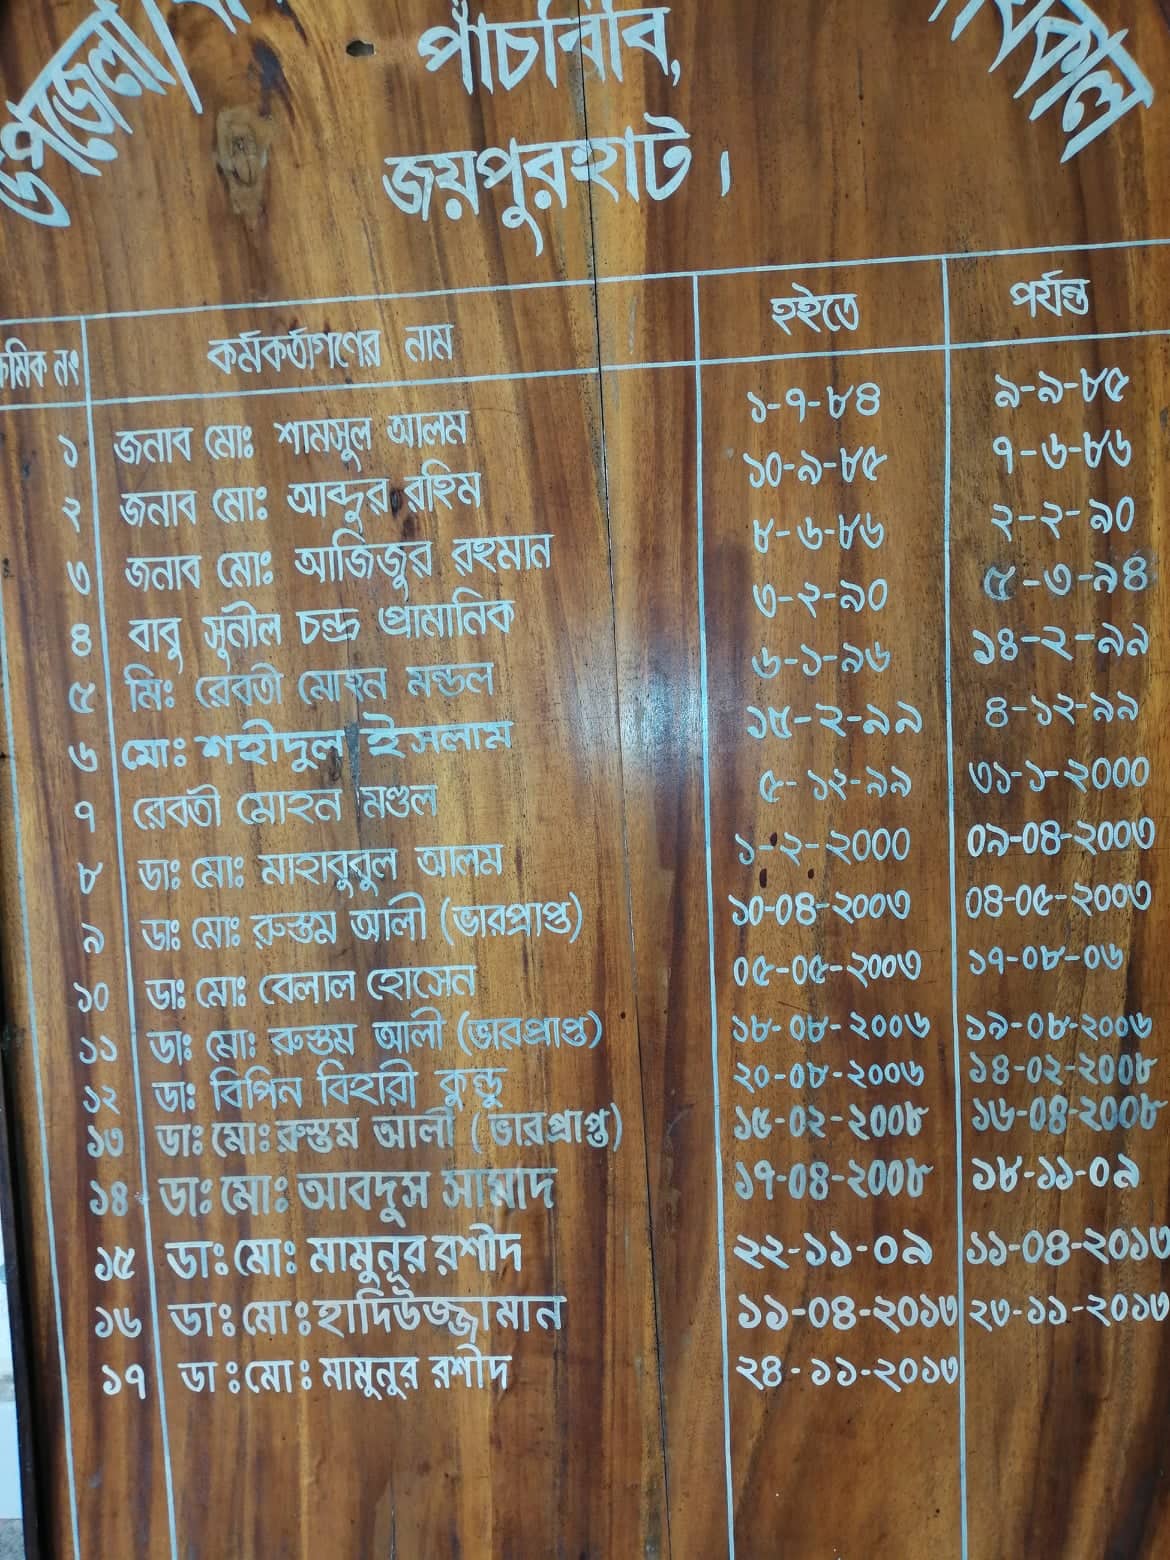 উপজেলা
কাল
পাঁচবিবি,
জয়পুরহাট।
ক্রমিক নং কর্মকর্তাগণের নাম হইতে পর্যন্ত
১ জনাব মোঃ শামসুল আলম ১-৭-৮৪ ৯-৯-৮৫
২ জনাব মোঃ আব্দুর রহিম ১০-৯-৮৫ ৭-৬-৮৬
৩ জনাব মোঃ আজিজুর রহমান ৮-৬-৮৬ ২-২-৯০
৪ বাবু সুনীল চন্দ্র প্রামানিক ৩-২-৯০ ৫-৩-৯৪
৫ মিঃ রেবতী মোহন মন্ডল ৬-১-৯৬ ১৪-২-৯৯
৬ মোঃ শহীদুল ইসলাম ১৫-২-৯৯ ৪-১২-৯৯
৭ রেবতী মোহন মণ্ডল ৫-১২-৯৯ ৩১-১-২০০০
৮ ডাঃ মোঃ মাহাবুবুল আলম ১-২-২০০০ ০৯-০৪-২০০৩
৯ ডাঃ মোঃ রুস্তম আলী (ভারপ্রাপ্ত) ১০-০৪-২০০৩ ০৪-০৫-২০০৩
১০ ডাঃ মোঃ বেলাল হোসেন ০৫-০৫-২০০৩ ১৭-০৮-০৬
১১ ডাঃ মোঃ রুস্তম আলী (ভারপ্রাপ্ত) ১৮-০৮-২০০৬ ১৯-০৮-২০০৬
১২ ডাঃ বিপিন বিহারী কুন্ডু ২০-০৮-২০০৬ ১৪-০২-২০০৮
১৩ ডাঃ মোঃ রুস্তম আলী (ভারপ্রাপ্ত) ১৫-০২-২০০৮ ১৬-০৪-২০০৮
১৪ ডাঃ মোঃ আবদুস সামাদ ১৭-০৪-২০০৮ ১৮-১১-০৯
১৫ ডাঃ মোঃ মামুনুর রশীদ ২২-১১-০৯ ১১-০৪-২০১৩
১৬ ডাঃ মোঃ হাদিউজ্জামান ১১-০৪-২০১৩ ২৩-১১-২০১৩
১৭ ডাঃ মোঃ মামুনুর রশীদ ২৪-১১-২০১৩